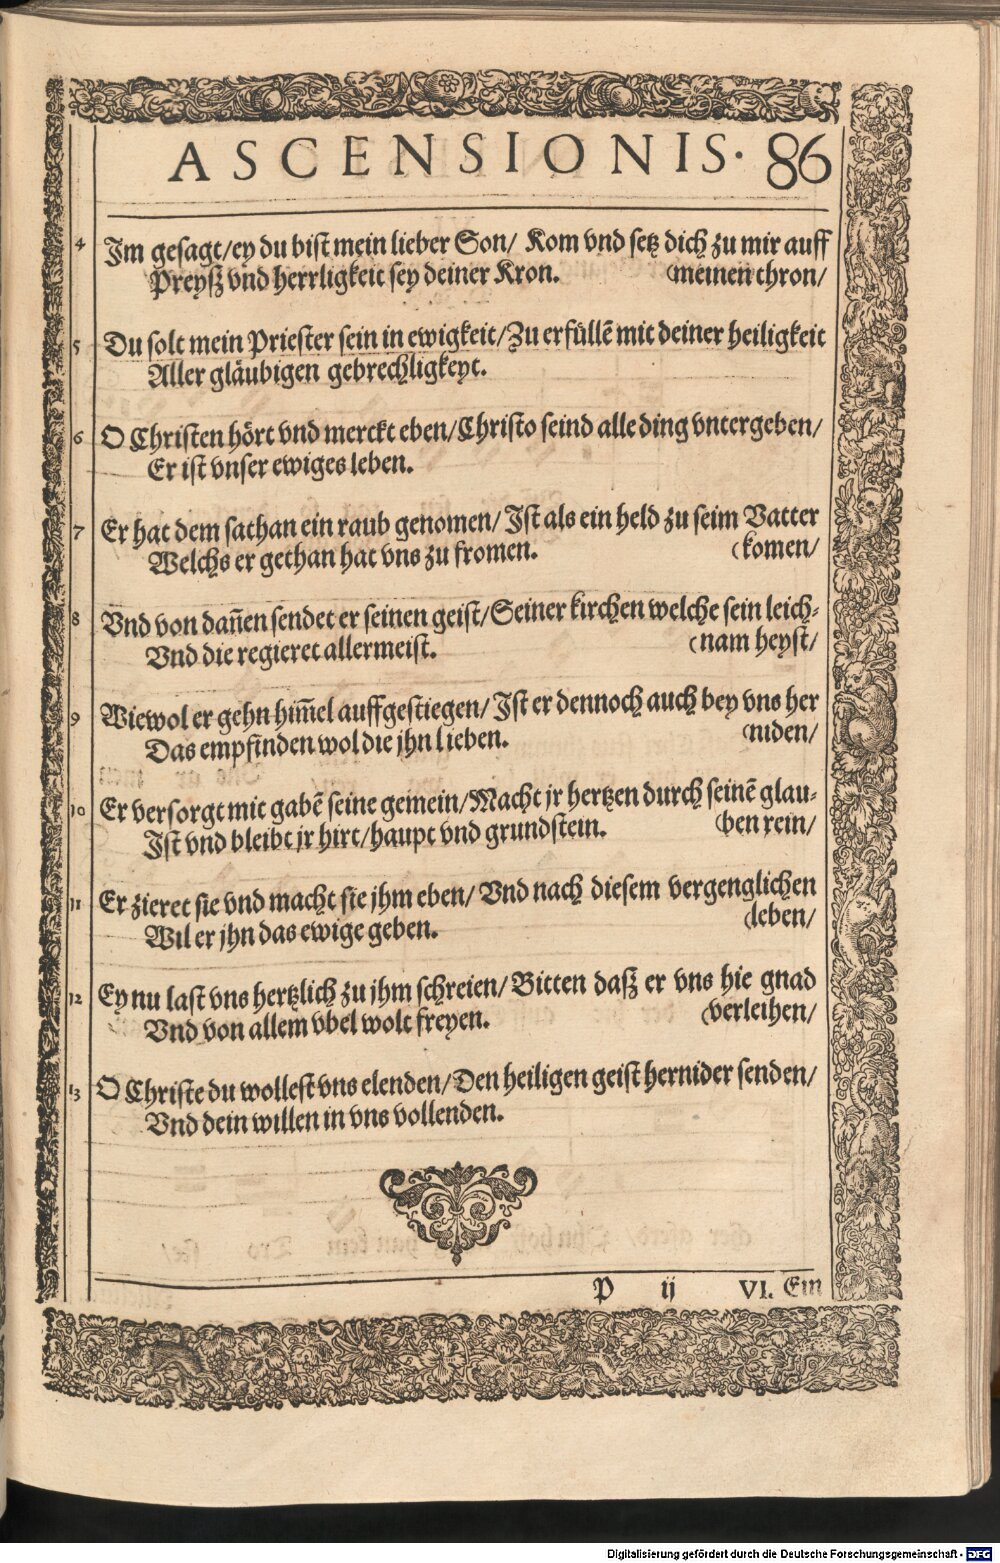 ASCENSIONIS. 86
4 Im gesagt/ ey du bist mein lieber Son/ Kom vnd setz dich zu mir auff
Preysz vnd herrligkeit sey deiner Kron. (meinen thron/
5 Du solt mein Priester sein in ewigkeit/ Zu erfüllē mit deiner heiligkeit
Aller gläubigen gebrechligkeyt.
6 O Christen hört vnd merckt eben/ Christo seind alle ding vntergeben/
Er ist vnser ewiges leben.
7 Er hat dem sathan ein raub genomen/ Ist als ein held zu seim Vatter
Welchs er gethan hat vns zu fromen. (komen/
8 Vnd von dañen sendet er seinen geist/ Seiner kirchen welche sein leich-
Vnd die regieret allermeist. (nam heyst/
9 Wiewol er gehn him̄el auffgestiegen/ Ist er dennoch auch bey vns her
Das empfinden wol die jhn lieben. (niden/
10 Er versorgt mit gabē seine gemein/ Macht jr hertzen durch seinē glau-
Ist vnd bleibt jr hirt/ haupt vnd grundstein. (ben rein/
11 Er zieret sie vnd macht sie jhm eben/ Vnd nach diesem vergenglichen
Wil er jhn das ewige geben. (leben/
12 Ey nu last vns hertzlich zu jhm schreien/ Bitten dasz er vns hie gnad
Vnd von allem vbel wolt freyen. (verleihen/
13 O Christe du wollest vns elenden/ Den heiligen geist hernider senden/
Vnd dein willen in vns vollenden.
P ij VI. Ein
Digitalisierung gefördert durch die Deutsche Forschungsgemeinschaft - DFG